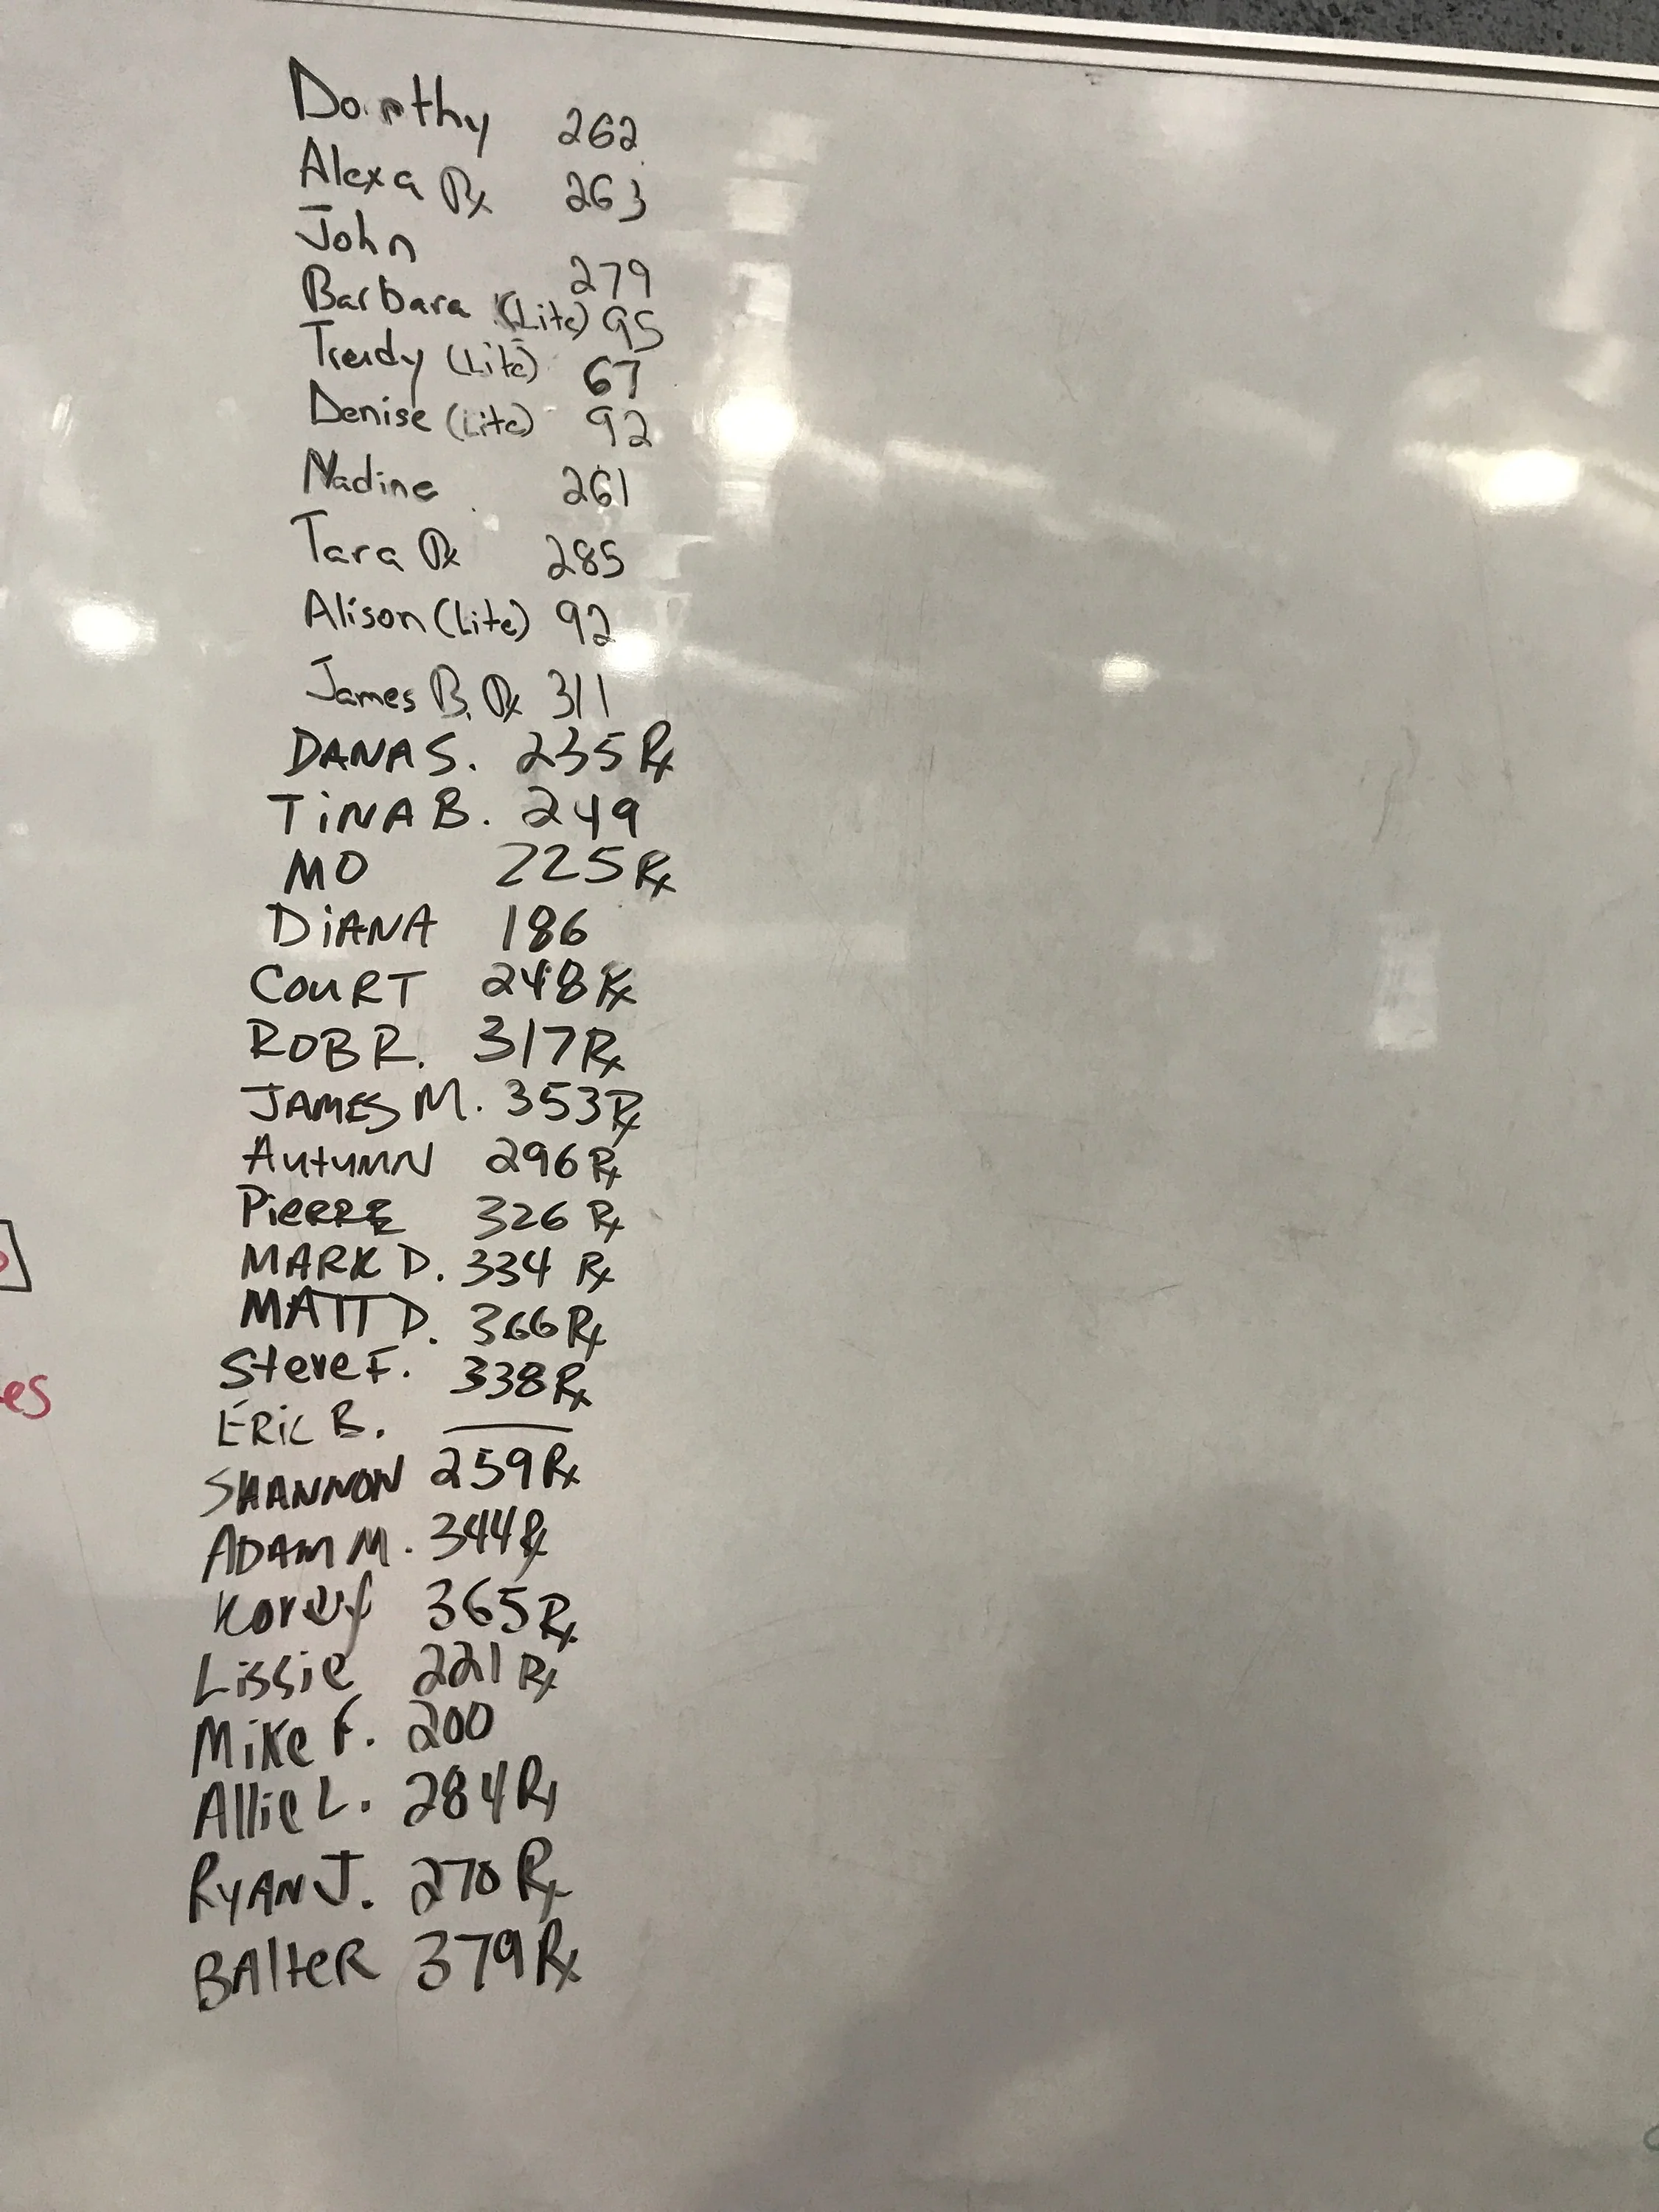 Dorothy 262
Alexa Rx 263
John 279
Barbara (Lite) 95
Trudy (Lite) 67
Denise (Lite) 92
Nadine 261
Tara Rx 285
Alison (Lite) 92
James B. Rx 311
DANA S. 235 Rx
TiNA B. 249
MO 225 Rx
DiANA 186
COURT 248 Rx
ROB R. 317 Rx
JAMES M. 353 Rx
AutuMN 296 Rx
PieRRE 326 Rx
MARK D. 334 Rx
MATT D. 366 Rx
Steve F. 338 Rx
ERiC B. —
SHANNON 259 Rx
ADAM M. 344 Rx
Korey 365 Rx
Lissie 221 Rx
Mike F. 200
Allie L. 284 Rx
RYAN J. 270 Rx
BAlteR 379 Rx
es